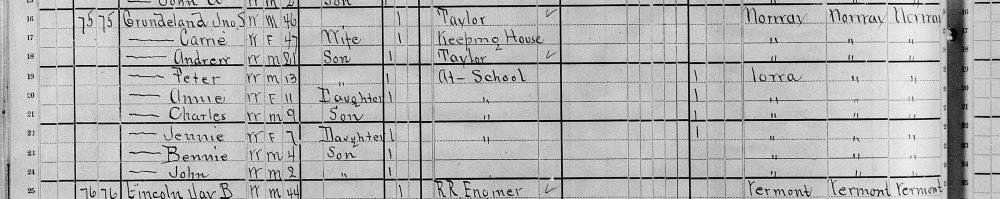 John W m 2 Son
16 75 75 Grundeland Jno. S W m 46 1 Taylor Norway Norway Norway
17 — Carrie W F 47 Wife 1 Keeping House " " "
18 — Andrew W m 21 Son 1 Taylor " " "
19 — Peter W m 13 " 1 At-School 1 Iowa " "
20 — Annie W F 11 Daughter 1 " 1 " " "
21 — Charles W m 9 Son 1 " 1 " " "
22 — Jennie W F 7 Daughter 1 " 1 " " "
23 — Bennie W m 4 Son 1 " " "
24 — John W m 2 " 1 " " "
25 76 76 Lincoln Jay B W m 44 1 RR Enginer Vermont Vermont Vermont